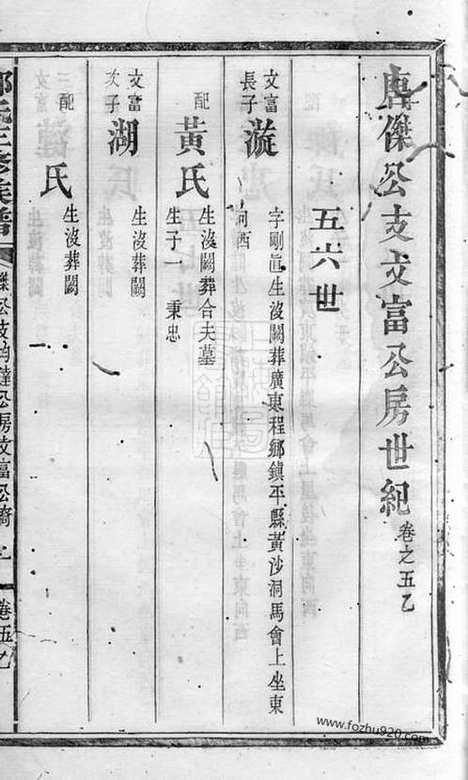 唐傑公支文富公房世紀 卷之五乙
五六世
文富長子 漩 字剛眞生沒闕葬廣東程鄉鎮平縣黃沙洞馬會上坐東向西
配 黃氏 生沒闕葬合夫墓
生子一 秉忠
文富次子 湖 生沒葬闕
配 氏 生沒葬闕
氏三修族譜
公支均達公房文富公房
卷五乙
www.fozhu920.com